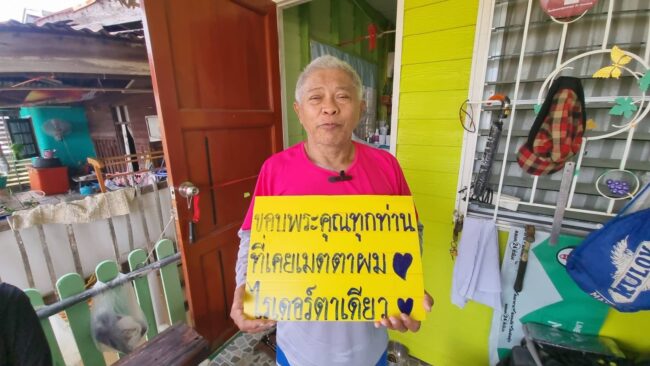 ขอบพระคุณทุกท่าน
ที่เคยเมตตาผม
ไรเดอร์ตาเดียว
KULOV